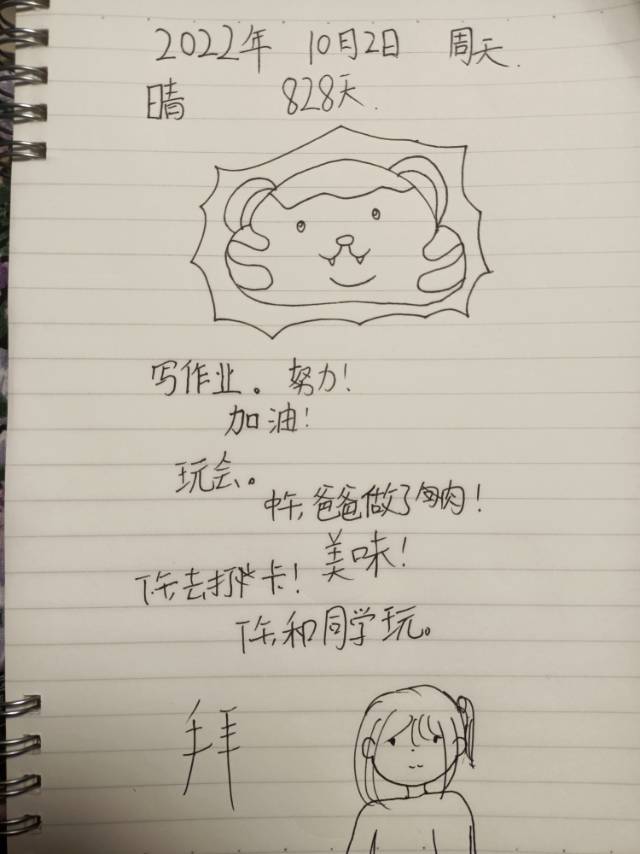 2022年 10月2日 周天.
晴 828天.
写作业。努力!
加油!
玩会。
中午,爸爸做了 肉!
美味!
下午,去打 卡!
下午,和同学玩。
拜